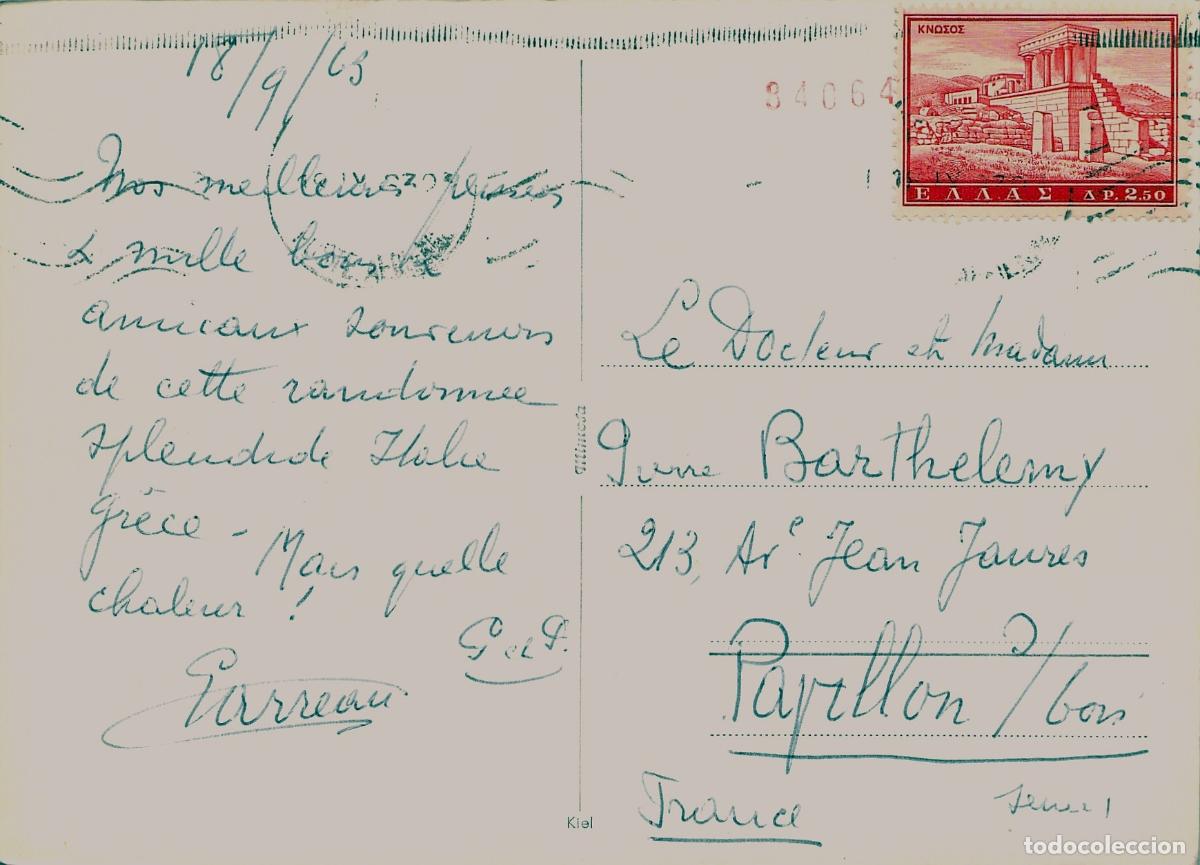 18/9/63
Nos meilleures pensées
& mille bons &
amicaux souvenirs
de cette randonnée
splendide Italie
Grèce - Mais quelle
chaleur !
G et P.
Garreau
84064
ΚΝΩΣΟΣ
ΕΛΛΑΣ ΔΡ. 2.50
Le Docteur et Madame
Pierre Barthelemy
213, Ave Jean Jaures
Pavillon s/bois
France
Kiel
todocoleccion